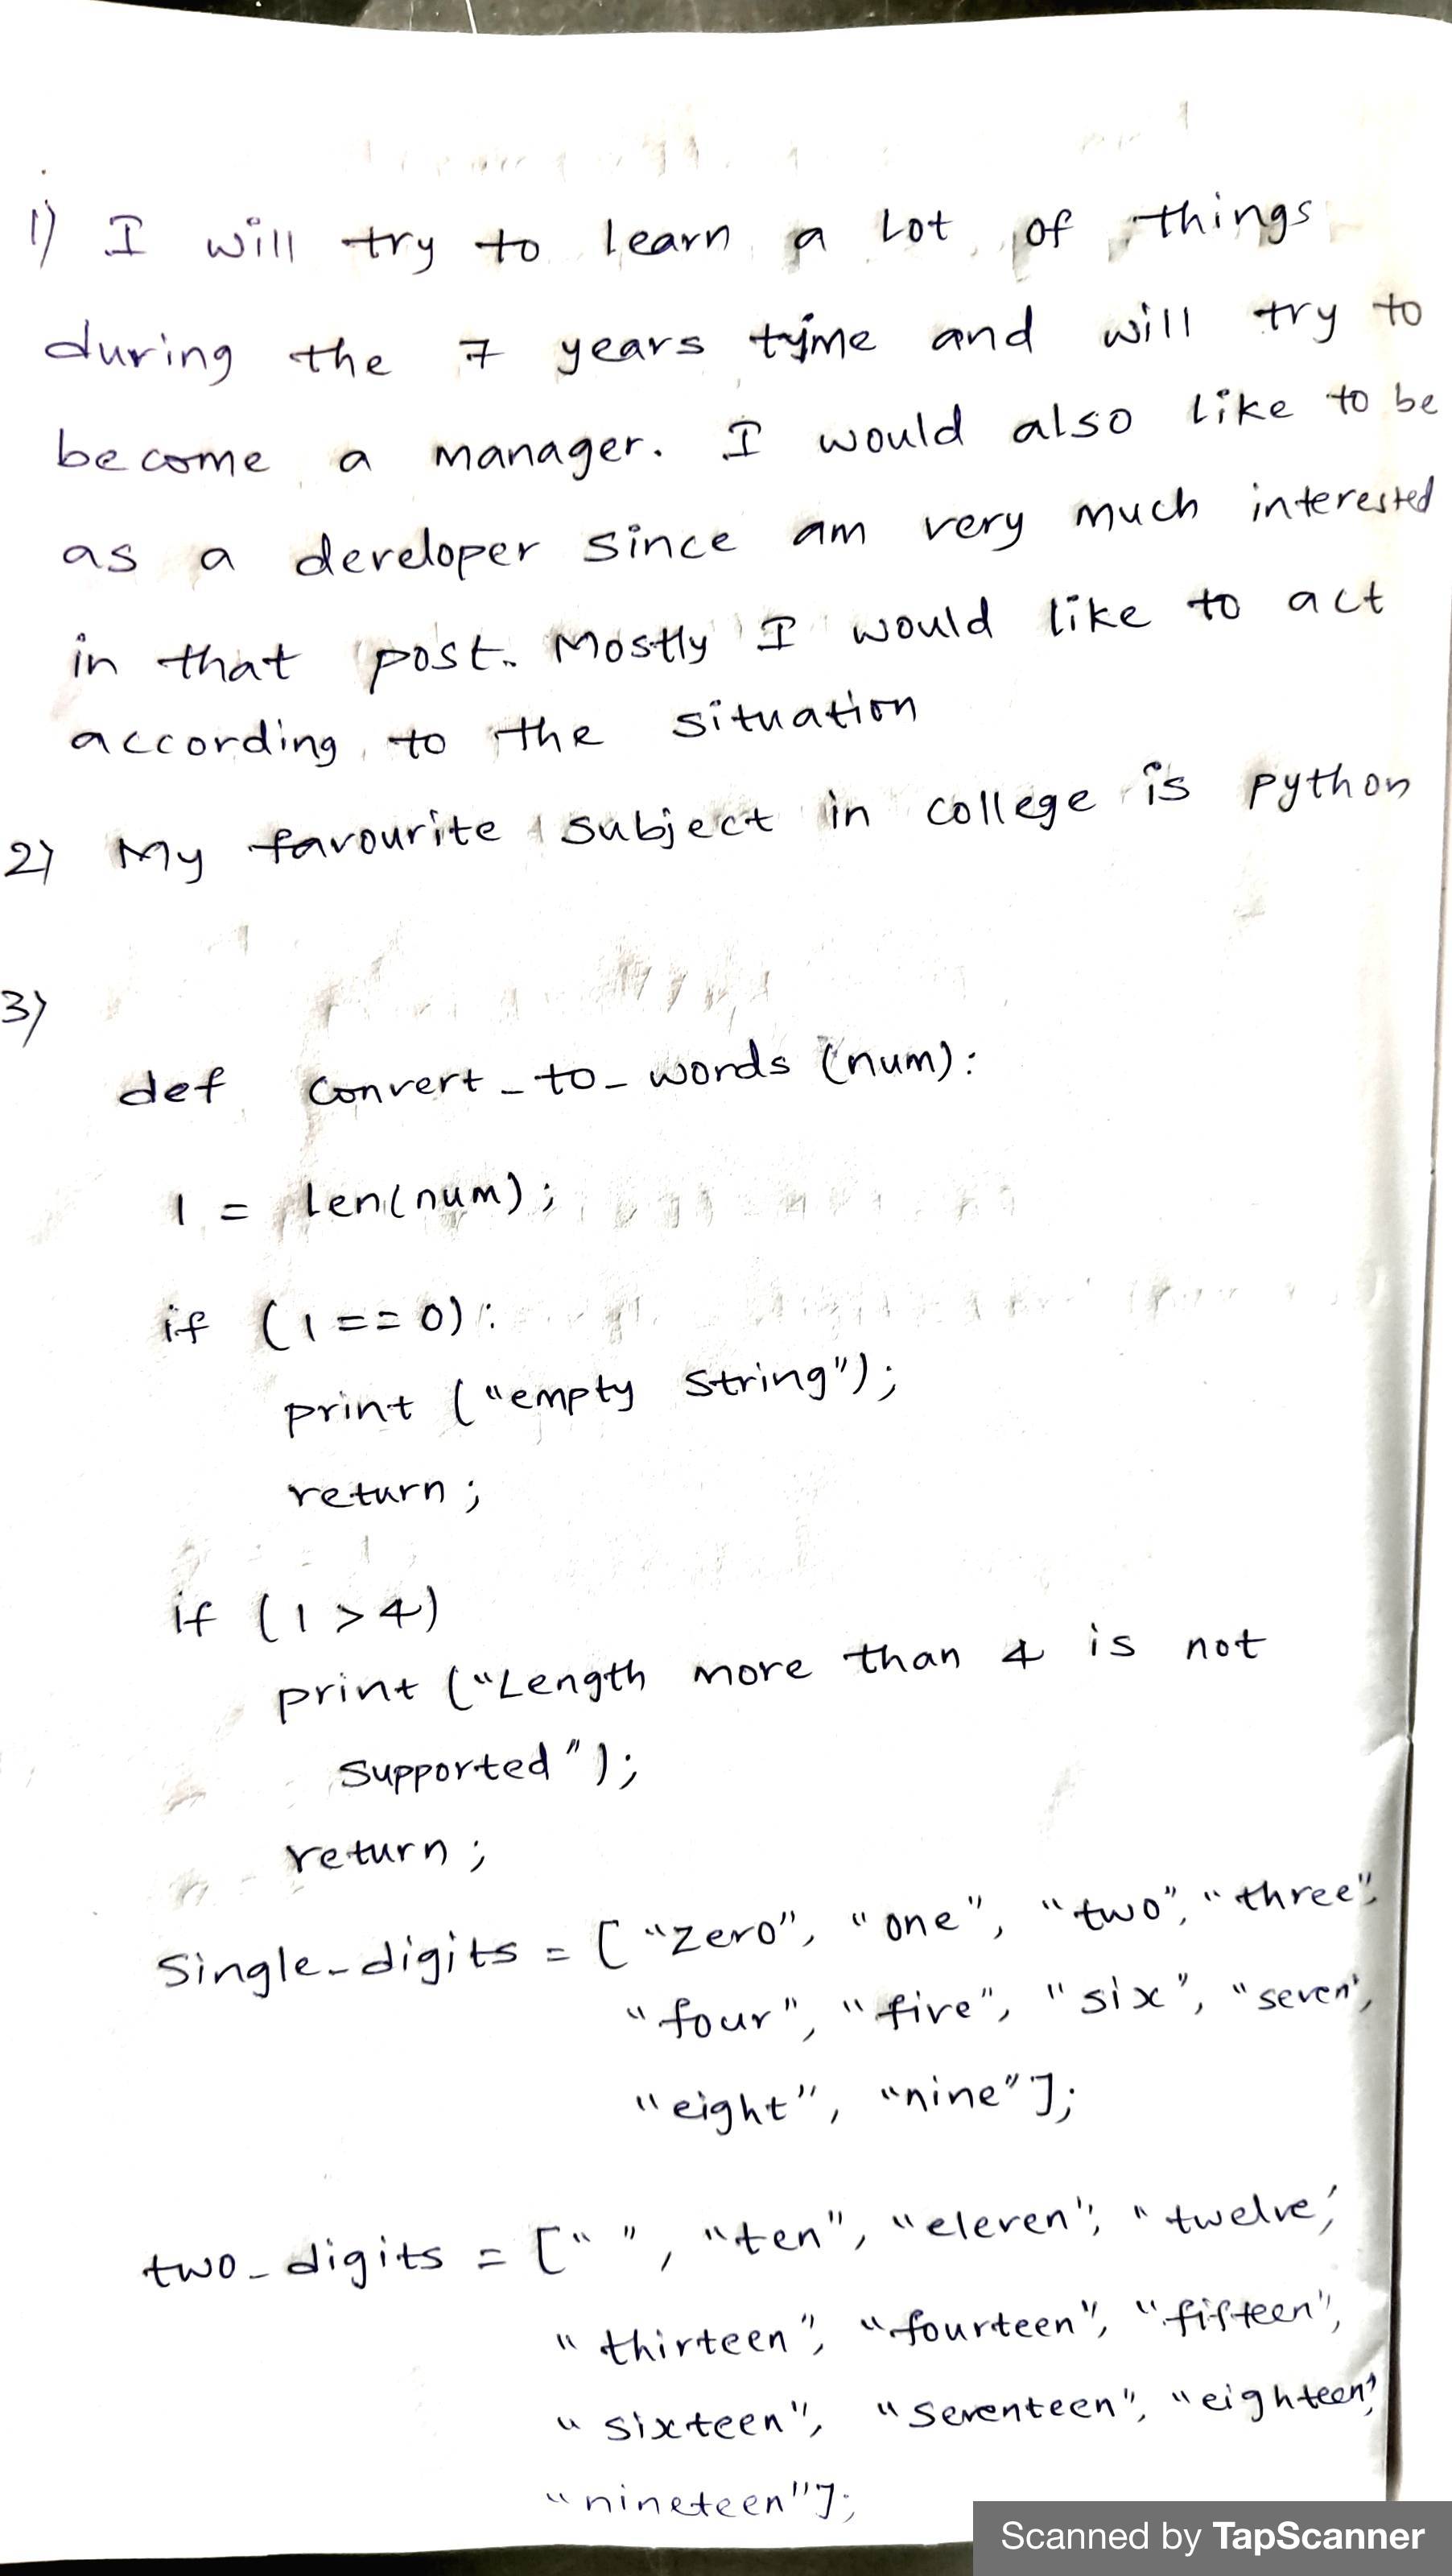 1) I will try to learn a lot of things
during the 7 years time and will try to
become a manager. I would also like to be
as a developer since am very much interested
in that post. Mostly I would like to act
according to the situation
2) My favourite subject in college is python
3)
def convert_to_words (num):
l = len(num);
if (l == 0):
print ("empty string");
return;
if (l > 4)
print ("Length more than 4 is not
supported");
return;
Single_digits = ["zero", "one", "two", "three",
"four", "five", "six", "seven",
"eight", "nine"];
two_digits = [" ", "ten", "eleven", "twelve,
"thirteen", "fourteen", "fifteen",
"sixteen", "seventeen", "eighteen",
"nineteen"];
Scanned by TapScanner